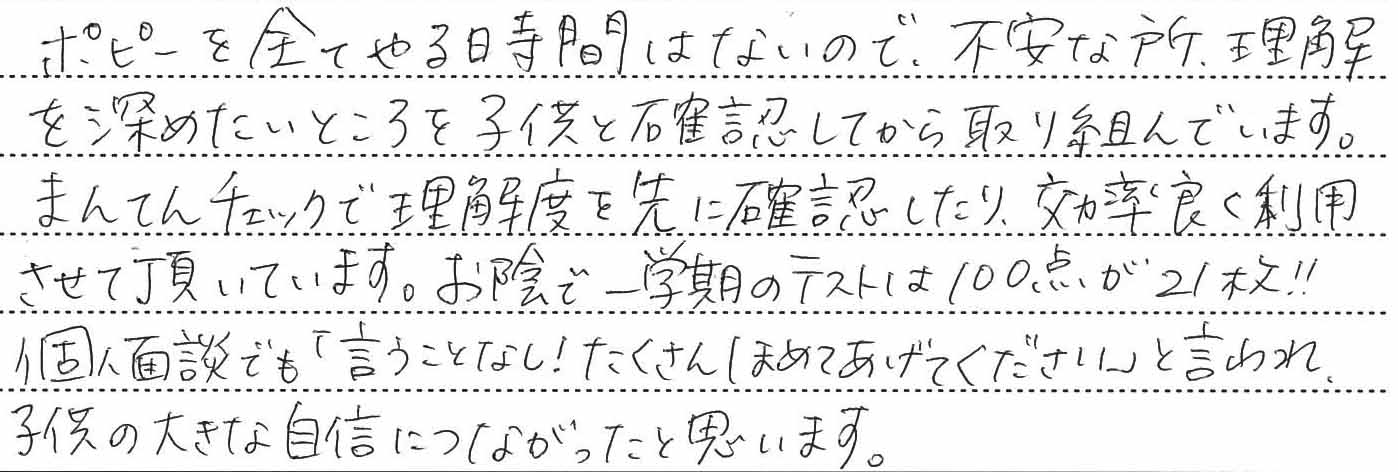 ポピーを全てやる時間はないので、不安な所、理解
を深めたいところを子供と確認してから取り組んでいます。
まんてんチェックで理解度を先に確認したり、効率良く利用
させて頂いています。お陰で一学期のテストは100点が21枚!!
個人面談でも「言うことなし!たくさんほめてあげてください」と言われ、
子供の大きな自信につながったと思います。